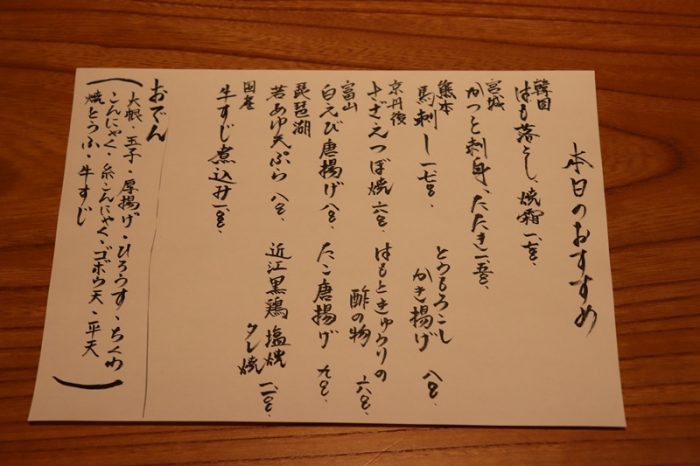 本日のおすすめ
韓国
はも落とし、焼霜 一七〇〇、
宮城
かつを刺身、たたき 一五〇〇、
熊本
馬刺し 一七〇〇、
とうもろこし
かき揚げ 八〇〇、
京丹後
さざえつぼ焼 六〇〇、
はもときゅうりの
酢の物 六〇〇、
富山
白えび唐揚げ 八〇〇、
たこ唐揚げ 九〇〇、
琵琶湖
若あゆ天ぷら 八〇〇、
近江黒鶏 塩焼
タレ焼 一二〇〇、
国産
牛すじ煮込み
おでん
(大根・玉子・厚揚げ・ひろうす・ちくわ
こんにゃく・糸こんにゃく・ゴボウ天・平天
焼とうふ・牛すじ)